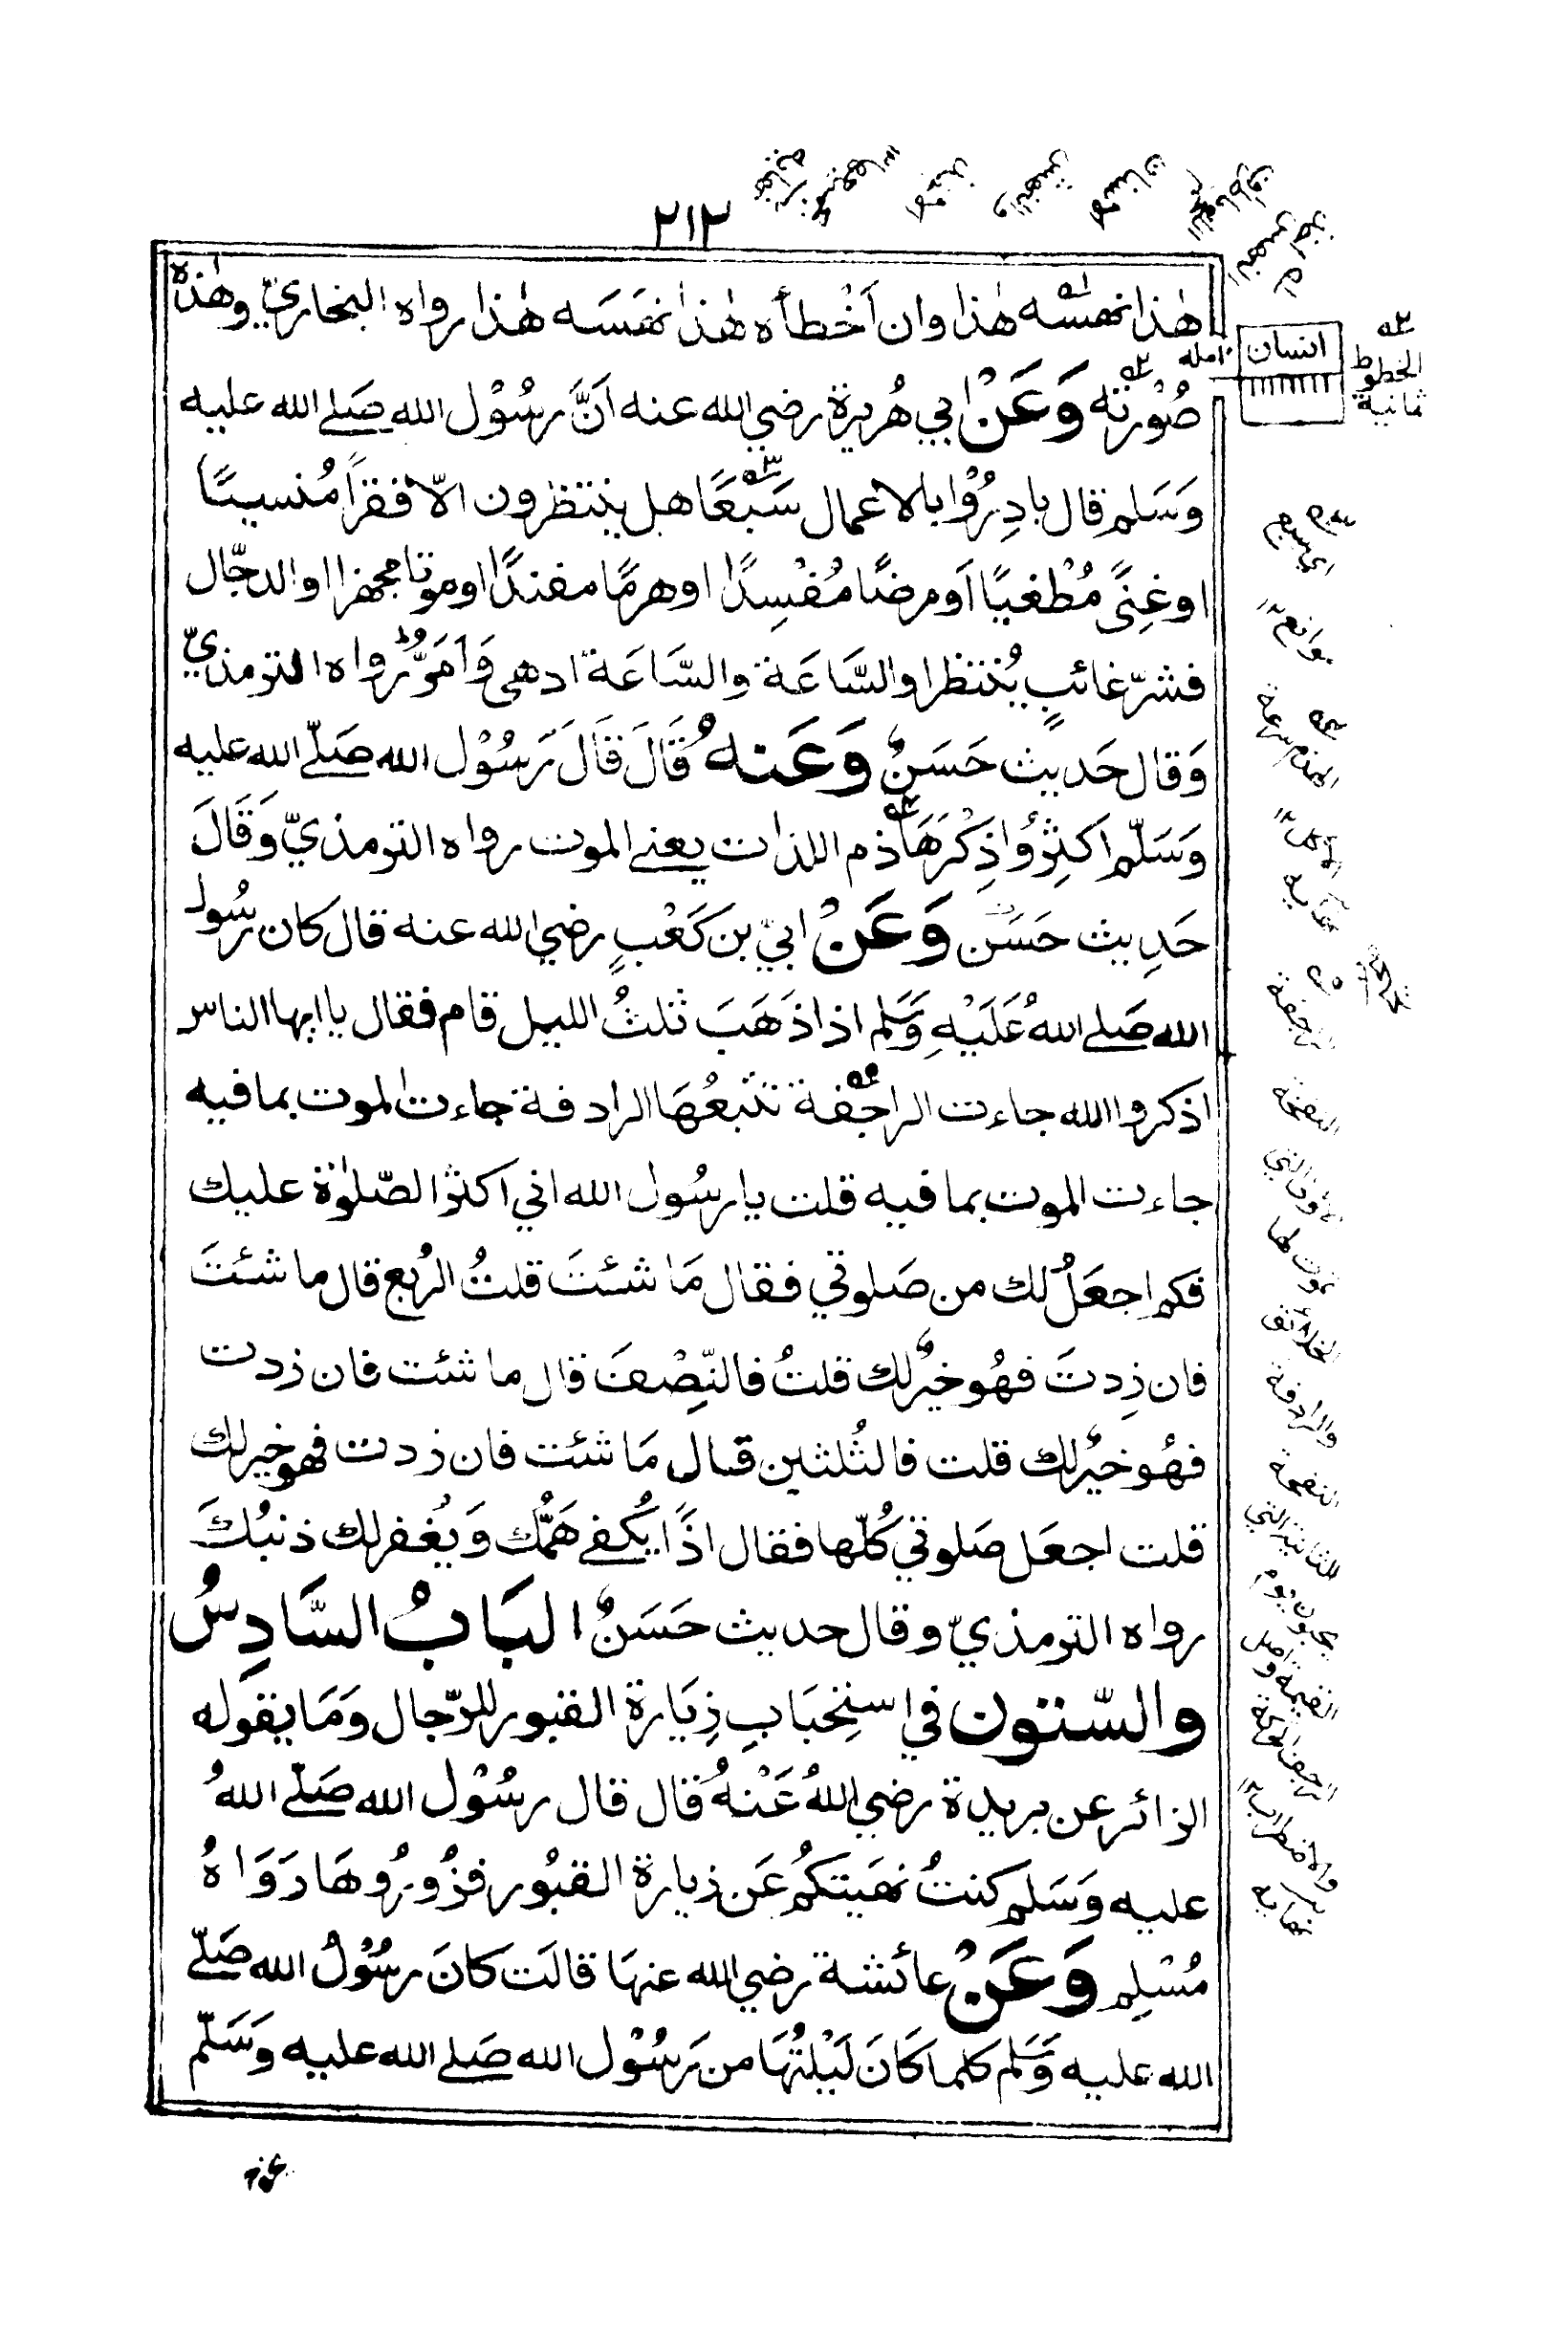 ٢١٢
هٰذا نهسَه هٰذا وان اَخْطأه هٰذا نهَسَه هٰذا رواه البخاريّ وهٰذه
صُوْرته وَعَنْ ابي هُريرة رضي الله عنه انَّ رسُوْل الله صَلے الله عليه
وَسَلم قال بادِرُوْا بالاعمال سَبْعًا هل ينتظرون الّا فقراً مُنسيًا
اوغِنًى مُطْغيًا اَومرضًا مُفْسِدًا اوهرمًا مفندًا اوموتا مجهزا اوالدجّال
فشرّ غائبٍ يُنتظر اوالسَّاعَة والسَّاعَة ادهى وَاَمَرُّ رواه الترمذيّ
وَقال حَديث حَسَنٌ وَعَنهُ قَالَ قَالَ رَسُوْل الله صَلّے الله عليه
وَسَلّم اكثِرُوْا ذِكْرَهَاذم اللذات يعنے الموت رواه الترمذيّ وَقَالَ
حَدِيث حَسَن وَعَنْ ابيّ بن كَعْبٍ رضي الله عنه قال كان رسُول
الله صَلے اللهُ عَلَيْهِ وَسَلم اذا ذَهَبَ ثلثُ الليل قام فقال ياايها الناس
اذكروا الله جاءت الراجفة تتبعُهَا الرادفة جاءت الموت بمافيه
جاءت الموت بمافيه قلت يارسُول الله اني اكثر الصّلٰوة عليك
فكم اجعَلُ لك من صَلوتي فقال مَا شئتَ قلتُ الرُبع قال ما شئتَ
فان زِدتَ فهُو خيرٌ لك قلتُ فالنّصْفَ قال ما شئت فان زدت
فهُو خيرٌ لك قلت فالثُلثين قال مَا شئت فان زدت فهو خير لك
قلت اجعَل صَلوتي كُلّها فقال اذًا يُكفے هَمُّك وَيُغفر لك ذنبُكَ
رواه الترمذيّ وقال حديث حَسَنٌ البَابُ السَّادِسُ
والسّتون في استِحبَابِ زِيَارة القبور للرّجال وَمَا يقوله
الزائر عن بريدة رضي اللهُ عَنْهُ قال قال رسُوْل الله صَلّے اللهُ
عليه وَسَلم كنتُ نهَيتكُم عَن زيارة القبُور فزُورُوهَا رَوَاهُ
مُسْلِم وَعَنْ عائشة رضي الله عنهَا قالَت كَانَ رسُوْلُ الله صَلّے
الله عليه وَسَلم كلما كَانَ لَيْلتُهَا من رَسُوْل الله صَلے الله عليه وَسَلّم
امله
انسان
الخطوط
ثمانية
اي سبع
موانع
الهذم سرعة
الراجفة
النفخة
الاولى التي
تموت لها
الخلائق
والرادفة
النفخة
الثانية التي
يحيون يوم
القيمة واصل
الرجف الحركة
والاضطراب
نهايه